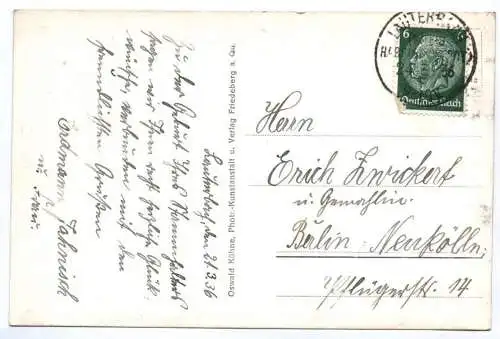 Lauterbach, den 21.2.36
Zu der Geburt Ihres Stammhalters
sagen wir Ihnen recht herzliche Glück-
wünsche, verbunden mit den
freundlichsten Grüßen
Erdmann Jähnisch
u. Frau.
Oswald Kühne, Photo-Kunstanstalt u. Verlag Friedeberg a. Qu.
LAUTERBACH
6
Deutsches Reich
Herrn
Erich Zwickert
u. Gemahlin.
Berlin-Neukölln
Pflügerstr. 14